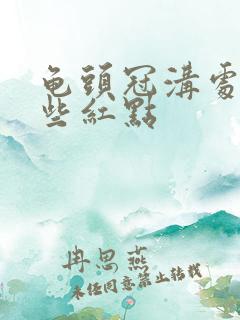 龟頭冠溝處
些紅點
冉思燕
未经同意禁止转载